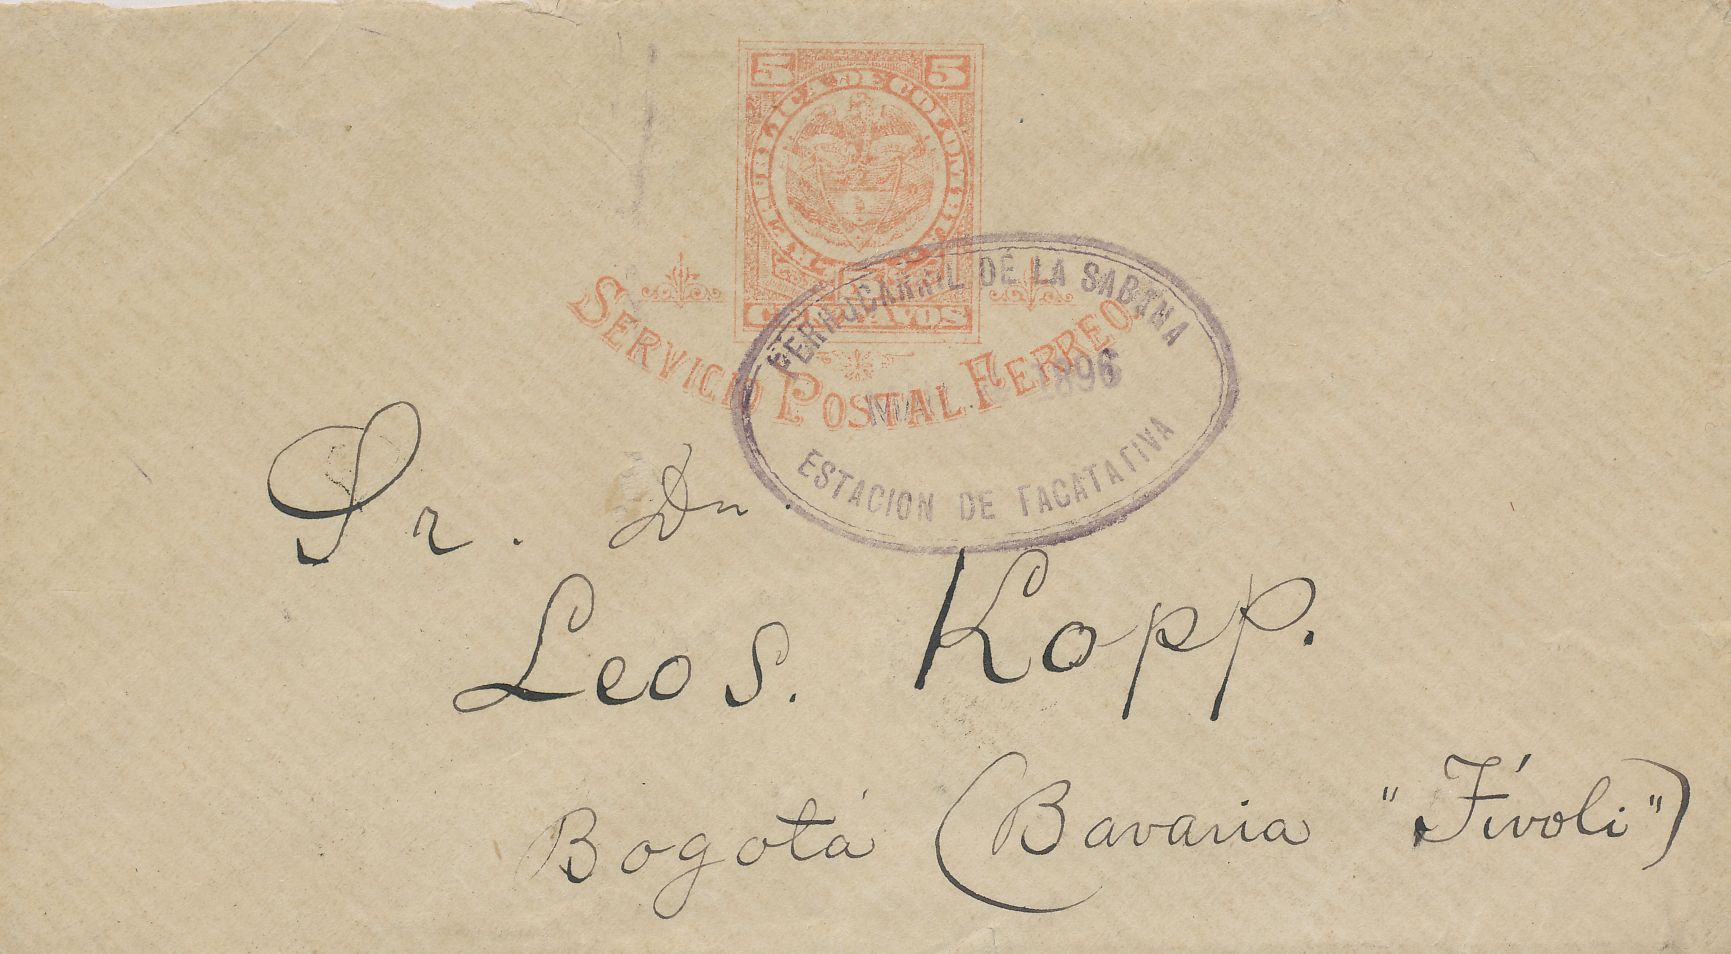 5 5
REPUBLICA DE COLOMBIA
5
CENTAVOS
SERVICIO POSTAL FERREO
FERROCARRIL DE LA SABANA
1896
ESTACION DE FACATATIVA
Sr. Dn.
Leo S. Kopp.
Bogotá (Bavaria "Tívoli")